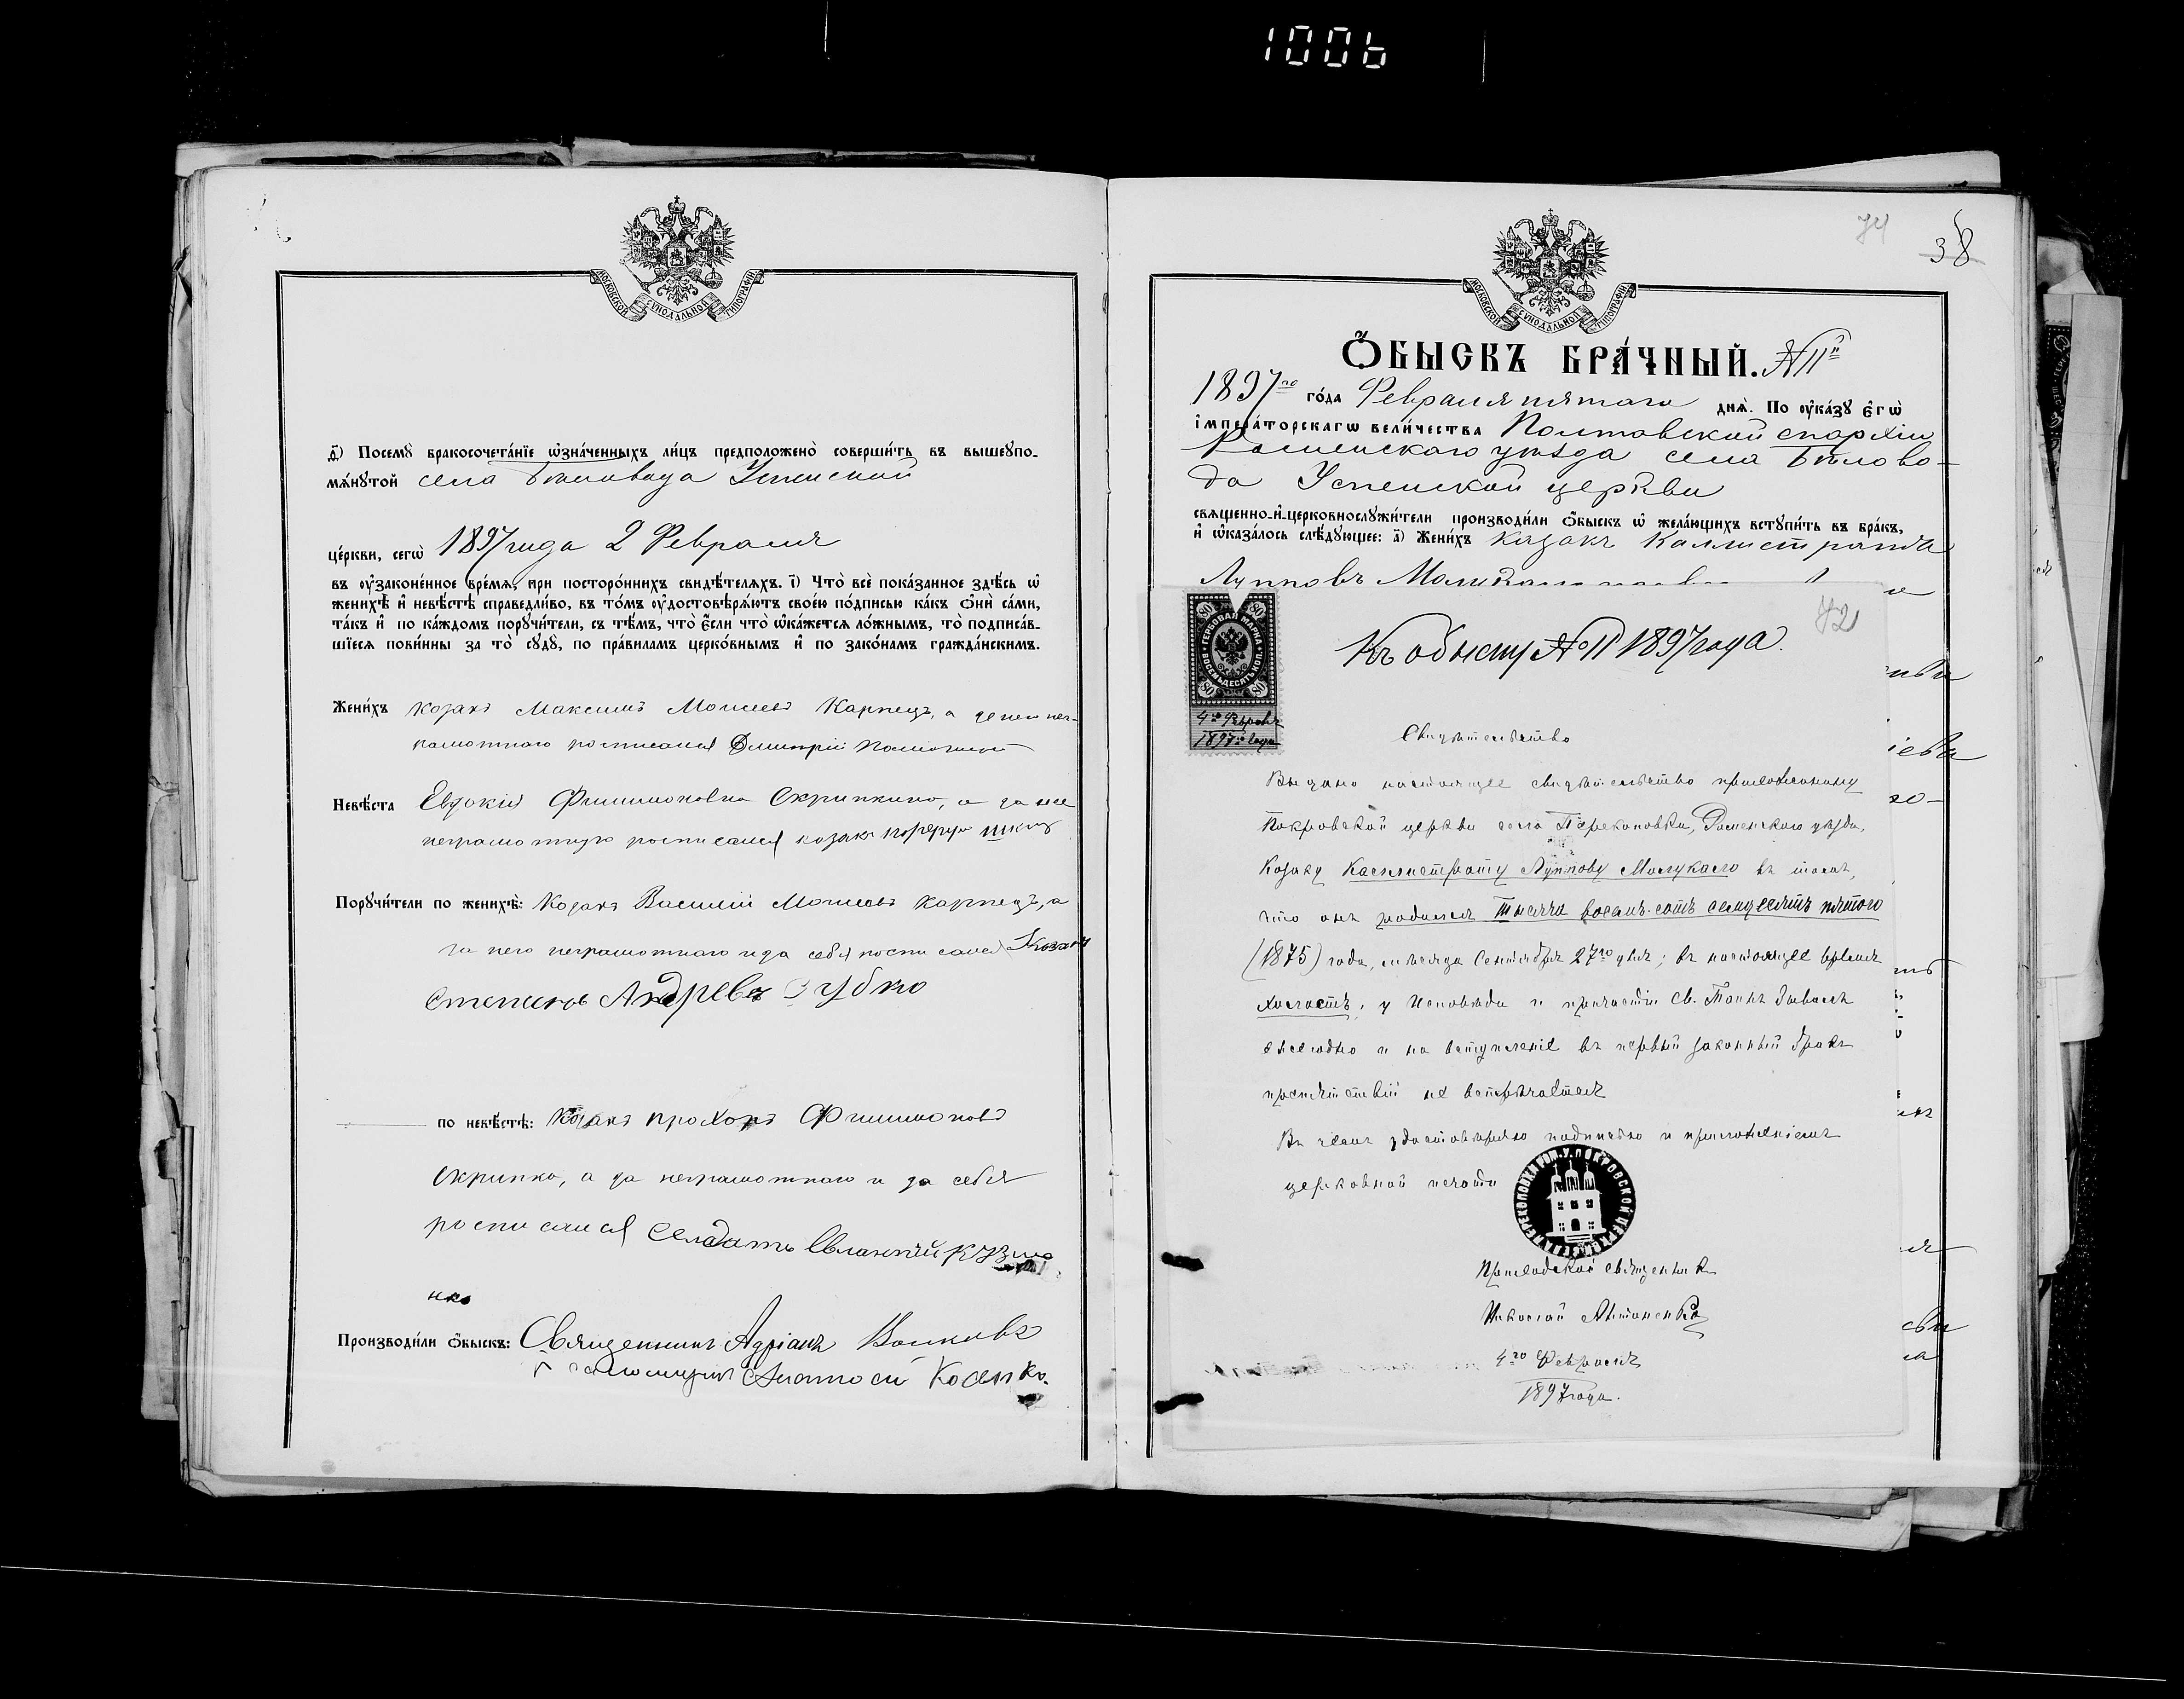 1006
МОСКОВСКОЙ СУНОДАЛЬНОЙ ТИПОГРАФІИ
ѳ҃) Посемꙋ̀ бракосочета́нїе ѡ҆зна́ченныхъ ли́цъ предположено̀ соверши́ть въ вышеупо-
мѧ́нꙋтой села Бѣловода Успенской
це́ркви, сегѡ̀ 1897 года 2 Февраля
въ ᲂу҆зако́ненное вре́мѧ, при посторо́ннихъ свидѣ́телѧхъ. і҃) Что̀ всѐ пока́занное здѣ́сь ѡ҆
женихѣ̀ и҆ невѣ́стѣ справедли́во, въ то́мъ ᲂу҆достовѣрѧ́ютъ свое́ю по́дписью ка́къ ѻ҆нѝ са́ми,
та́къ и҆ по ка́ждомъ порꙋчи́тели, съ тѣ́мъ, что̀ є҆́сли что̀ ѡ҆ка́жетсѧ ло́жнымъ, то̀ подписа́в-
шїесѧ пови́нны за то̀ сꙋдꙋ̀, по пра́виламъ церко́внымъ и҆ по зако́намъ гражда́нскимъ.
Жени́хъ козакъ Максимъ Моисеевъ Карпецъ, а за него неграмотнаго росписался Дмитрій
Невѣ́ста Евдокія Филимоновна Скрипкина, а за нее
неграмотную росписался козакъ
Порꙋчи́тели по женихѣ̀: Козакъ Василій Моисеевъ Карпецъ, а
за него неграмотнаго и за себя росписался Козакъ
Степанъ Андреевъ Зубко
по невѣ́стѣ: Козакъ Прохоръ Филимоновъ
Скрипка, а за неграмотнаго и за себя
росписался Солдатъ Евлампій Кузме
нко
Производи́ли ѻ҆́быскъ: Священникъ Адріанъ Волковъ
Псаломщикъ Косенко.
74
38
МОСКОВСКОЙ СУНОДАЛЬНОЙ ТИПОГРАФІИ
Ѻ҆́БЫСКЪ БРА́ЧНЫЙ. №11й
1897го го́да Февраля пятаго днѧ̀. По ᲂу҆ка́зꙋ є҆гѡ̀
і҆мпера́торскагѡ вели́чества Полтавской епархіи
Роменскаго уѣзда села Бѣлово-
да Успенской церкви
свѧще́нно-и҆-церковнослꙋжи́тели производи́ли ѻ҆́быскъ ѡ҆ жела́ющихъ встꙋпи́ть въ бра́къ,
и҆ ѡ҆каза́лось слѣ́дꙋющее: а҃) Жени́хъ казакъ Каллистратъ
Лупповъ
72
80 80
ГЕРБОВАЯ МАРКА ВОСЕМЬДЕСЯТЪ КОП.
80 80
4го Февраля
1897го года
Къ обыску №11 1897 года.
Свидѣтельство
Выдано настоящее свидѣтельство прихожанину
Покровской церкви села Перекоповки, Роменскаго уѣзда,
Козаку Каллистрату Луппову Молукало въ томъ,
что онъ родился тысяча восемь-сотъ семдесятъ пятого
(1875) года, мѣсяца Сентября 27го дня; въ настоящее время
холостъ, у Исповѣди и причастія Св. Таинъ бывалъ
ежегодно и на вступленіе въ первый законный бракъ
препятствій не встрѣчается
Въ чемъ удостовѣряю подписью и приложеніемъ
церковной печати
Приходской священникъ
Николай Антоненко
4го Февраля
1897 года.